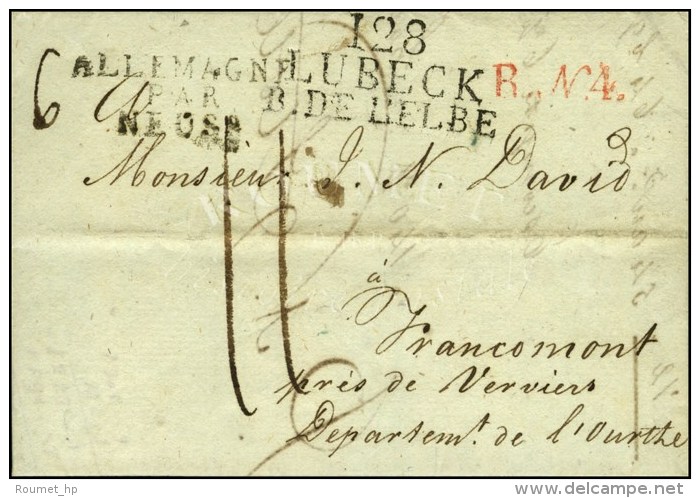 128
LUBECK
B. DE L'ELBE
R. N. 4.
ALLEMAGNE
PAR
NEUSS
6
11
Monsieur J. N. David
à
Francomont
près de Verviers
Departemt. de l'Ourthe
ROUMET
Roumet_hp
www.delcampe.net